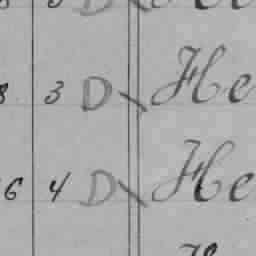 8 3 D He
6 4 D He